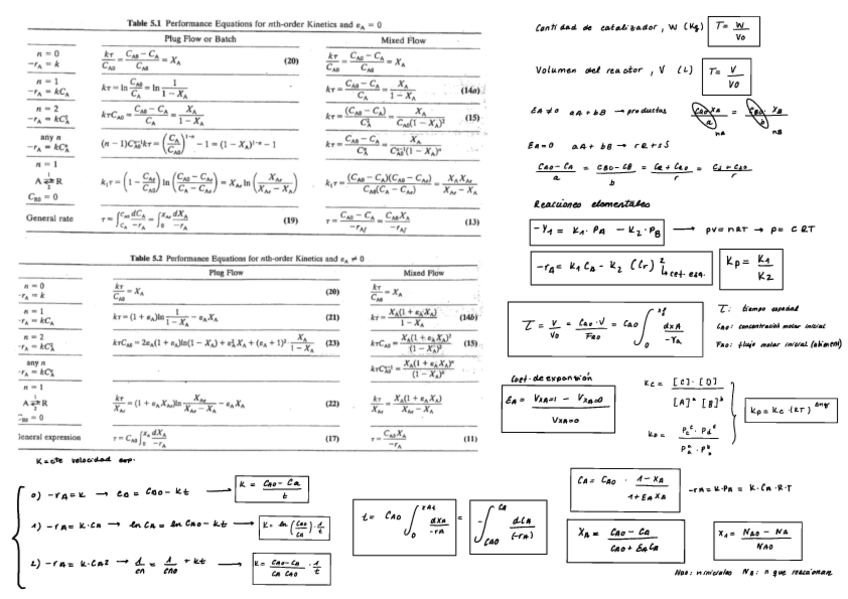 Table 5.1 Performance Equations for nth-order Kinetics and εA = 0
Plug Flow or Batch    Mixed Flow
n = 0
-rA = k
kτ/CA0 = (CA0 - CA)/CA0 = XA (20)
kτ/CA0 = (CA0 - CA)/CA0 = XA
n = 1
-rA = kCA
kτ = ln CA0/CA = ln 1/(1 - XA)
kτ = (CA0 - CA)/CA = XA/(1 - XA) (14a)
n = 2
-rA = kCA²
kτCA0 = (CA0 - CA)/CA = XA/(1 - XA)
kτ = (CA0 - CA)/CA² = XA/(CA0(1 - XA)²) (15)
any n
-rA = kCAⁿ
(n - 1)CA0ⁿ⁻¹kτ = (CA/CA0)¹⁻ⁿ - 1 = (1 - XA)¹⁻ⁿ - 1
kτ = (CA0 - CA)/CAⁿ = XA/(CA0ⁿ⁻¹(1 - XA)ⁿ)
n = 1
A ⇌ R
CR0 = 0
k1τ = (1 - CAe/CA0) ln ((CA0 - CAe)/(CA - CAe)) = XAe ln (XAe/(XAe - XA))
k1τ = (CA0 - CA)(CA0 - CAe)/(CA0(CA - CAe)) = XAXAe/(XAe - XA)
General rate
τ = ∫ dCA/-rA = CA0 ∫ dXA/-rA (19)
τ = (CA0 - CA)/-rAf = CA0XA/-rAf (13)
Table 5.2 Performance Equations for nth-order Kinetics and εA ≠ 0
Plug Flow    Mixed Flow
n = 0
-rA = k
kτ/CA0 = XA (20)
kτ/CA0 = XA
n = 1
-rA = kCA
kτ = (1 + εA)ln 1/(1 - XA) - εAXA (21)
kτ = XA(1 + εAXA)/(1 - XA) (14b)
n = 2
-rA = kCA²
kτCA0 = 2εA(1 + εA)ln(1 - XA) + εA²XA + (εA + 1)² XA/(1 - XA) (23)
kτCA0 = XA(1 + εAXA)²/(1 - XA)² (15)
any n
-rA = kCAⁿ
kτCA0ⁿ⁻¹ = XA(1 + εAXA)ⁿ/(1 - XA)ⁿ
n = 1
A ⇌ R
CR0 = 0
kτ/XAe = (1 + εAXAe)ln XAe/(XAe - XA) - εAXA (22)
kτ/XAe = XA(1 + εAXA)/(XAe - XA)
General expression
τ = CA0 ∫ dXA/-rA (17)
τ = CA0XA/-rA (11)
K = cte velocidad exp.
0) -rA = K → CA = CA0 - Kt → K = (CA0 - CA)/t
1) -rA = K·CA → ln CA = ln CA0 - Kt → K = ln (CA0/CA) · 1/t
2) -rA = K·CA2 → 1/CA = 1/CA0 + Kt → K = (CA0 - CA)/(CA CA0) · 1/t
Cantidad de catalizador, W (Kg) τ = W/V0
Volumen del reactor, V (L) τ = V/V0
EA ≠ 0 aA + bB → productos CA0·XA/a = CB0·XB/b
nA nB
EA = 0 aA + bB → rR + sS
(CA0 - CA)/a = (CB0 - CB)/b = (CR + CR0)/r = (CS + CS0)/r
Reacciones elementales
-r1 = K1·PA - K2·PB → PV = nRT → P = CRT
-rA = K1 CA - K2 (Cr)² KP = K1/K2
τ = V/V0 = CA0·V/FA0 = CA0 ∫ dXA/-rA
τ: tiempo espacial
CA0: concentración molar inicial
FA0: flujo molar inicial (aliment)
Coef. de expansión
EA = (VXA=1 - VXA=0)/VXA=0
KC = [C]·[D]/[A]ᵃ[B]ᵇ
KP = KC·(RT)
t = CA0 ∫ dXA/-rA = -∫ dCA/(-rA)
CA = CA0 · (1 - XA)/(1 + EA XA)
-rA = K·PA = K·CA·R·T
XA = (CA0 - CA)/(CA0 + EACA)
X1 = (NA0 - NA)/NA0
NA0: n iniciales NA: n que reaccionan